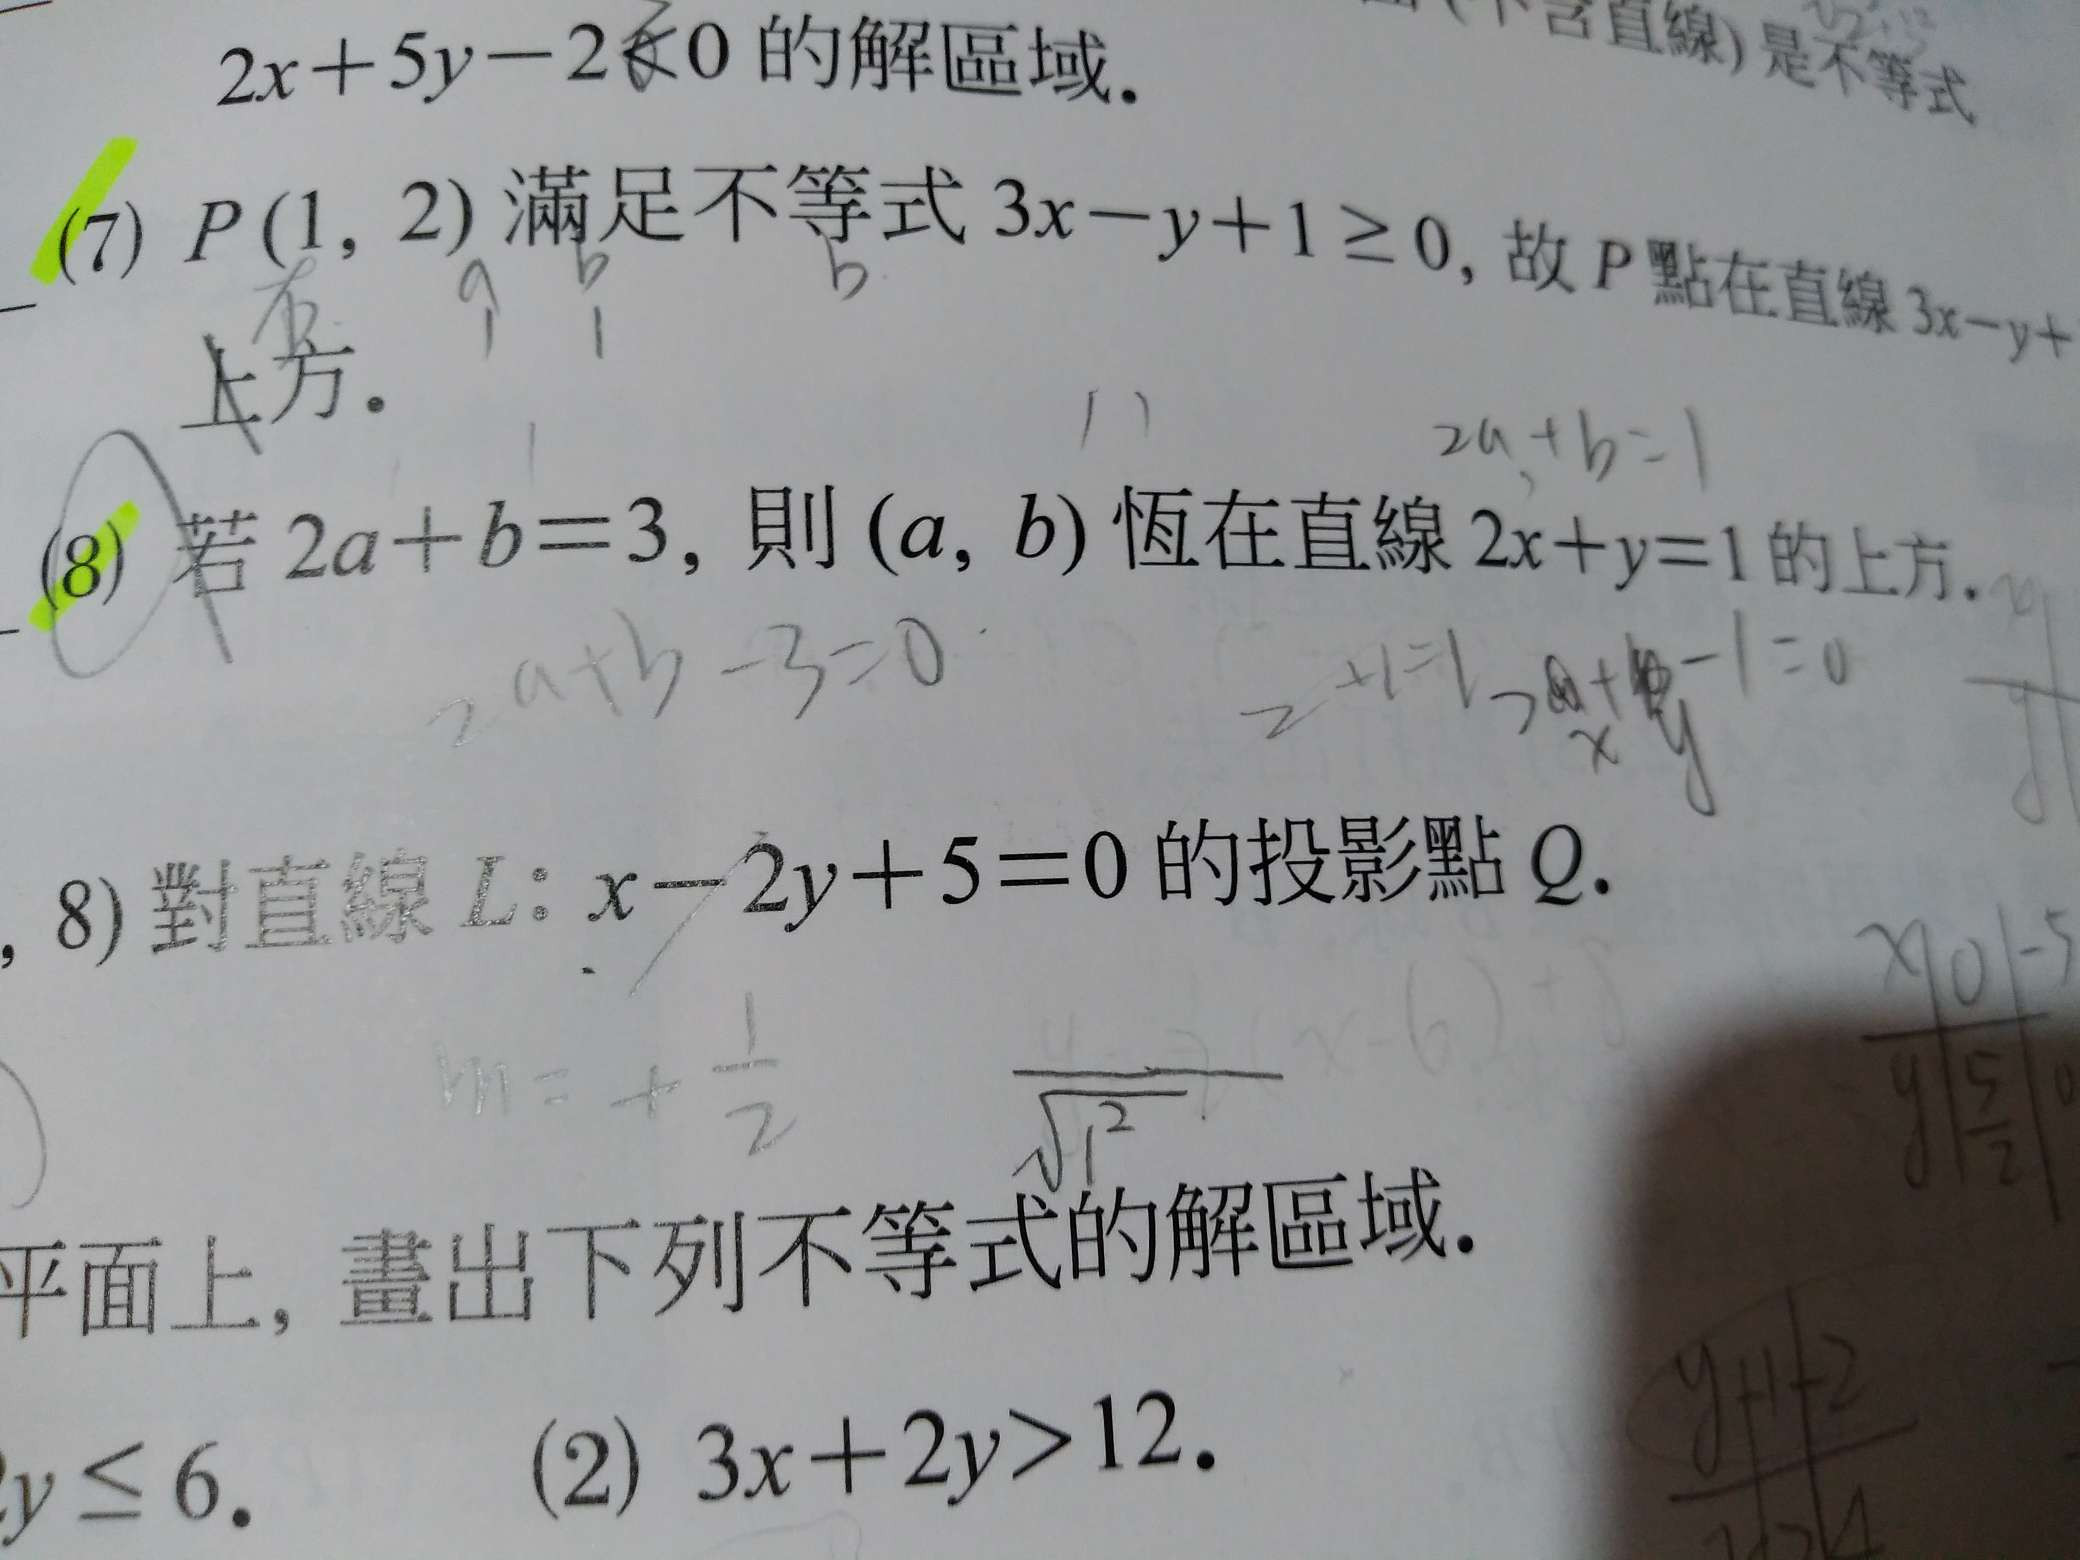 (不含直線) 是不等式
2x+5y-2<0 的解區域.
(7) P(1, 2) 滿足不等式 3x-y+1≥0, 故 P 點在直線 3x-y+
a b b
1 1
上方.
2a+b=1
(8) 若 2a+b=3, 則 (a, b) 恆在直線 2x+y=1 的上方.
2a+b-3=0
-1=0
x y
, 8) 對直線 L: x-2y+5=0 的投影點 Q.
x 0 -5
y 5/2 0
m=+1/2
√1²
平面上, 畫出下列不等式的解區域.
y≤6. (2) 3x+2y>12.